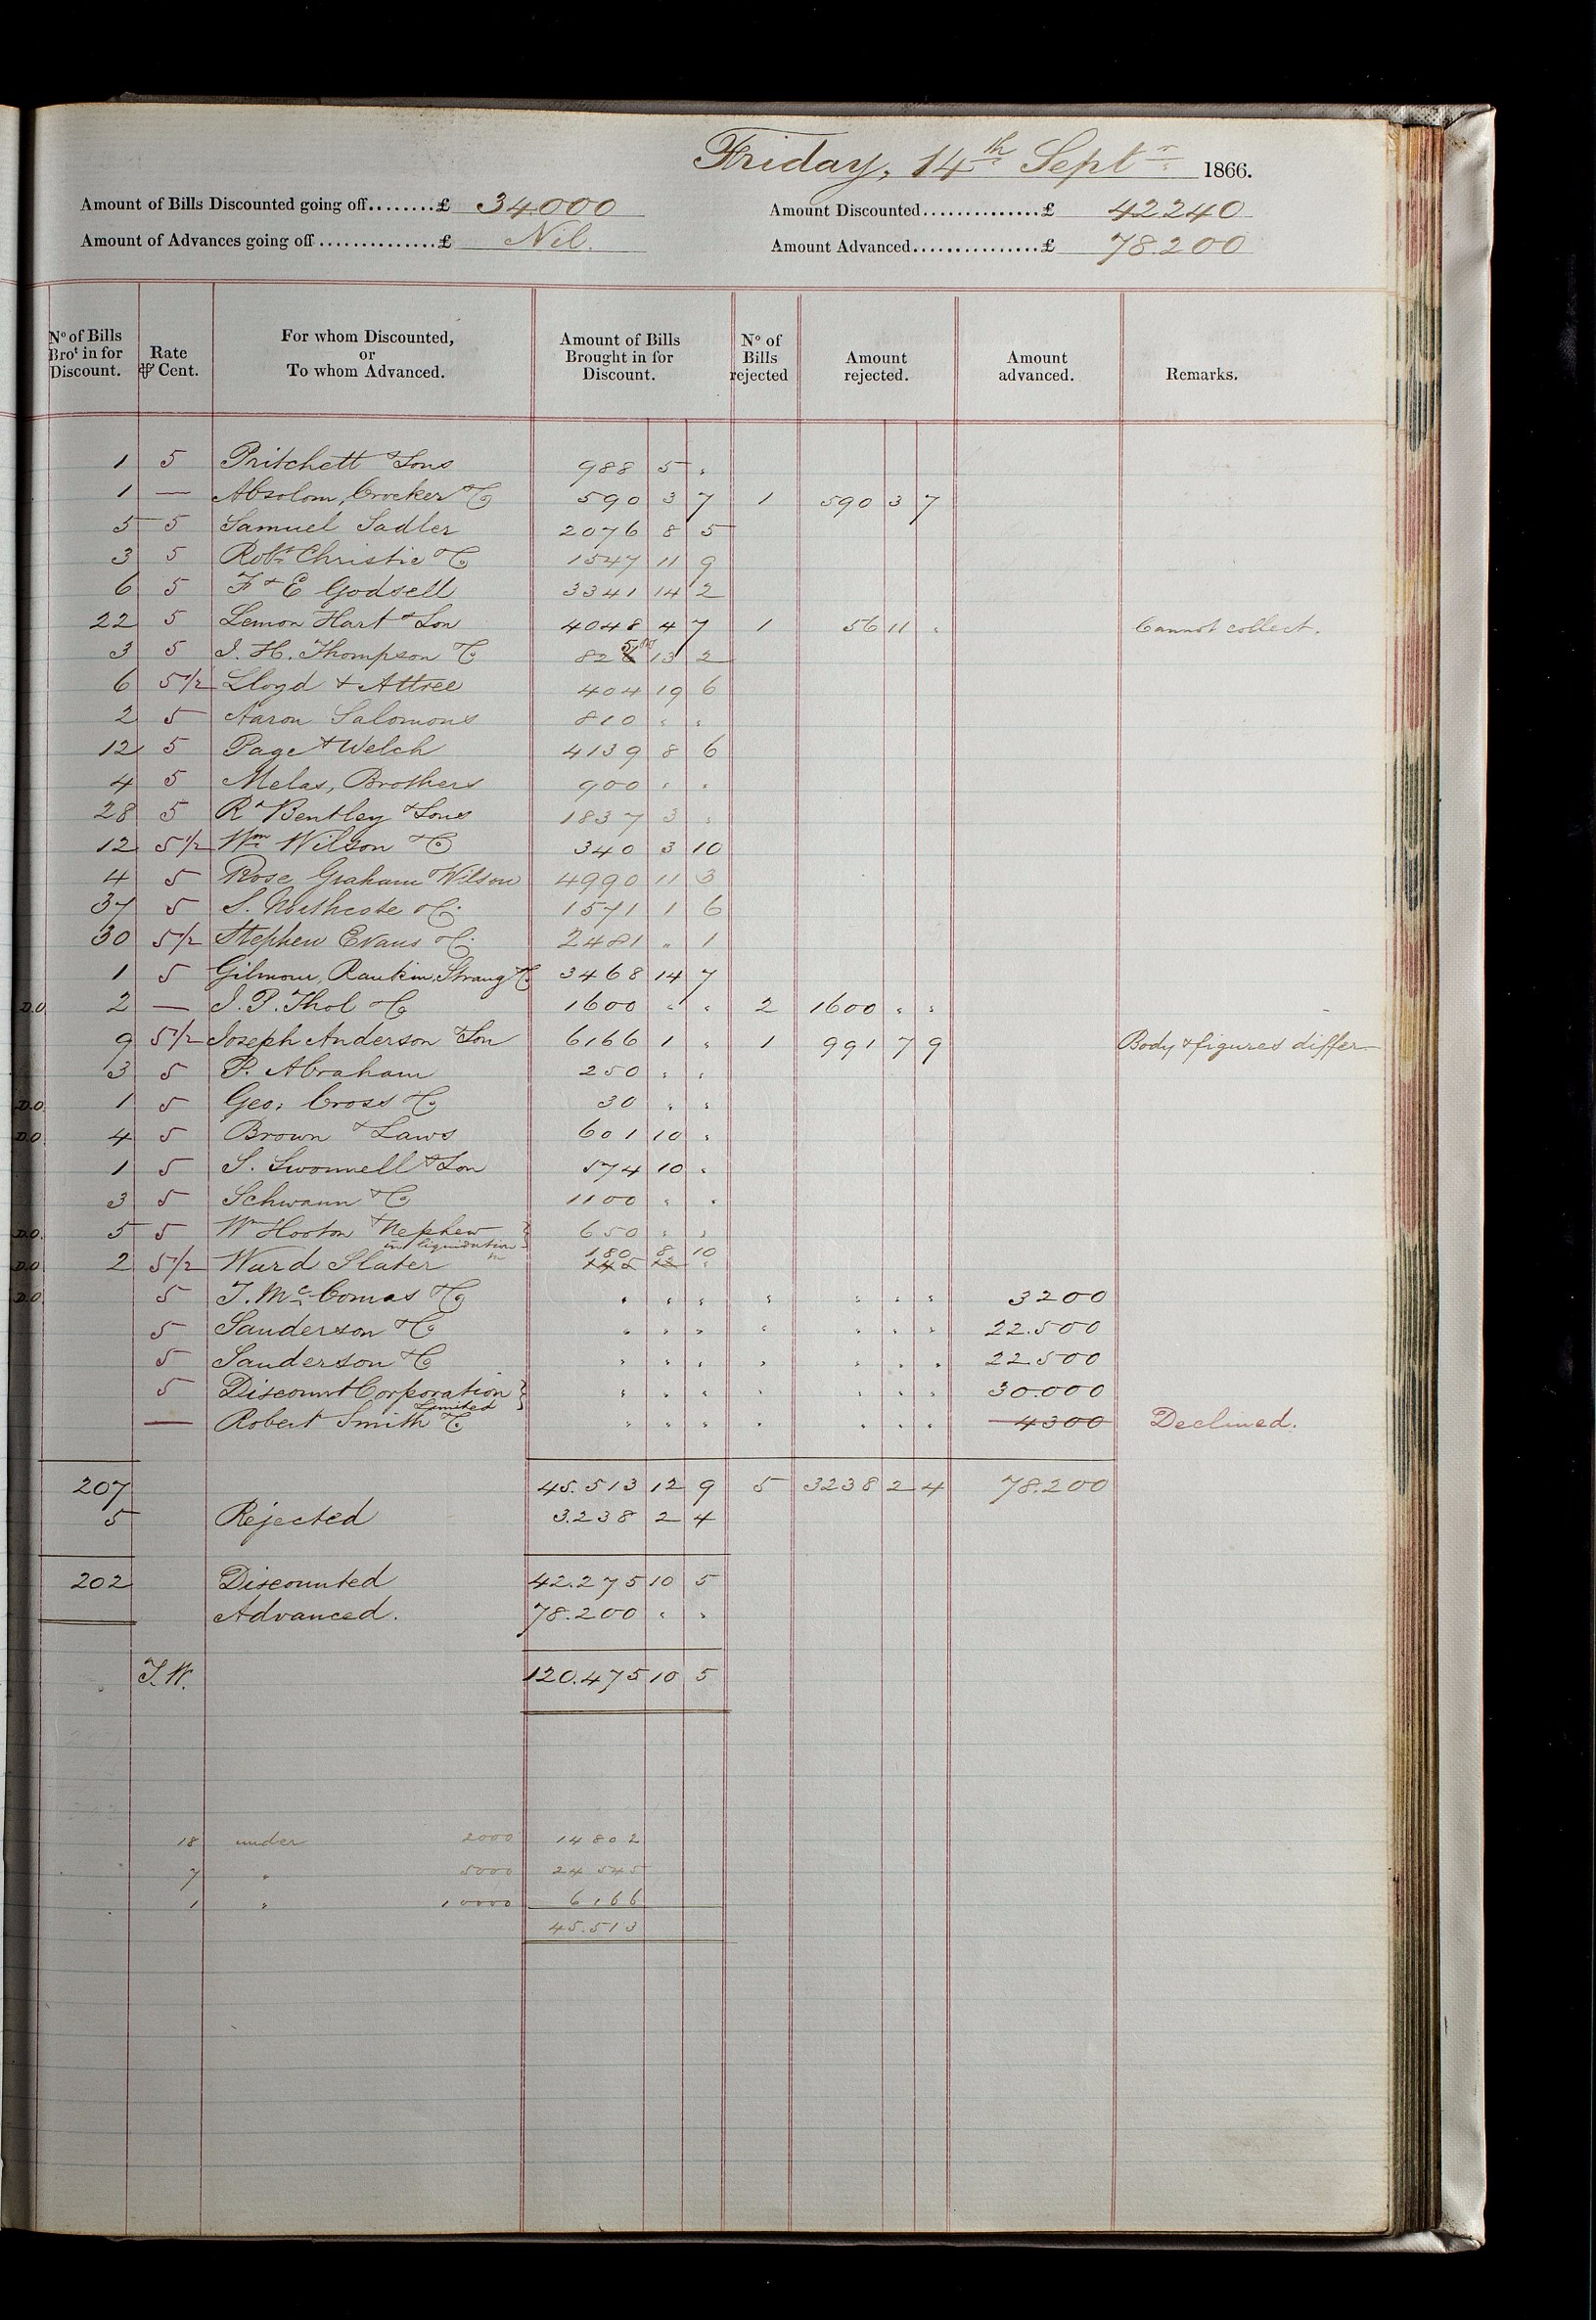 Friday, 14th Septr 1866.
Amount of Bills Discounted going off........£ 34000 Amount Discounted..............£ 42240
Amount of Advances going off..............£ Nil. Amount Advanced................£ 78.200
No of Bills Brot in for Discount. Rate ⅌ Cent. For whom Discounted, or To whom Advanced. Amount of Bills Brought in for Discount. No of Bills rejected Amount rejected. Amount advanced. Remarks.
1 5 Pritchett & Sons 988 5 "
1 — Absolom, Crocker & Co 590 3 7 1 590 3 7
5 5 Samuel Sadler 2076 8 5
3 5 Robt Christie & Co 1547 11 9
6 5 F & E Godsell 3341 14 2
22 5 Lemon Hart & Son 4048 4 7 1 56 11 " Cannot collect.
3 5 J. H. Thompson & Co 825 13 2
6 5 1/2 Lloyd & Attree 404 19 6
2 5 Aaron Salomons 810 " "
12 5 Page & Welch 4139 8 6
4 5 Melas, Brothers 900 " "
28 5 Rd Bentley & Sons 1837 3 "
12 5 1/2 Wm Wilson & Co 340 3 10
4 5 Rose Graham & Wilson 4990 11 3
37 5 S. Northcote & Co 1571 1 6
30 5 1/2 Stephen Evans & Co 2481 " 1
1 5 Gilmour, Rankin, Strang & Co 3468 14 7
D.O. 2 — J. P. Thol & Co 1600 " " 2 1600 " "
9 5 1/2 Joseph Anderson & Son 6166 1 " 1 991 7 9 Body & figures differ—
3 5 P. Abraham 250 " "
D.O. 1 5 Geo. Cross & Co 30 " "
D.O. 4 5 Brown & Laws 601 10 "
1 5 S. Swonnell & Son 574 10 "
3 5 Schwann & Co 1100 " "
D.O. 5 5 Wm Hooton & Nephew 650 " "
in liquidation
D.O. 2 5 1/2 Ward Slater 180 8 10
D.O. 5 T. McComas & Co " " " " " " " 3200
5 Sanderson & Co " " " " " " " 22.500
5 Sanderson & Co " " " " " " " 22.500
5 Discount Corporation " " " " " " " 30.000
Limited
— Robert Smith & Co " " " " " " " 4300 Declined.
207 45.513 12 9 5 3238 2 4 78.200
5 Rejected 3.238 2 4
202 Discounted 42.275 10 5
Advanced. 78.200 " "
J.W. 120.475 10 5
18 under 2000 14802
7 " 5000 24545
1 " 10000 6166
45.513